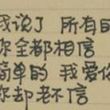 我说了 所有的
你全都相信
简单的 我爱你
你却老不信